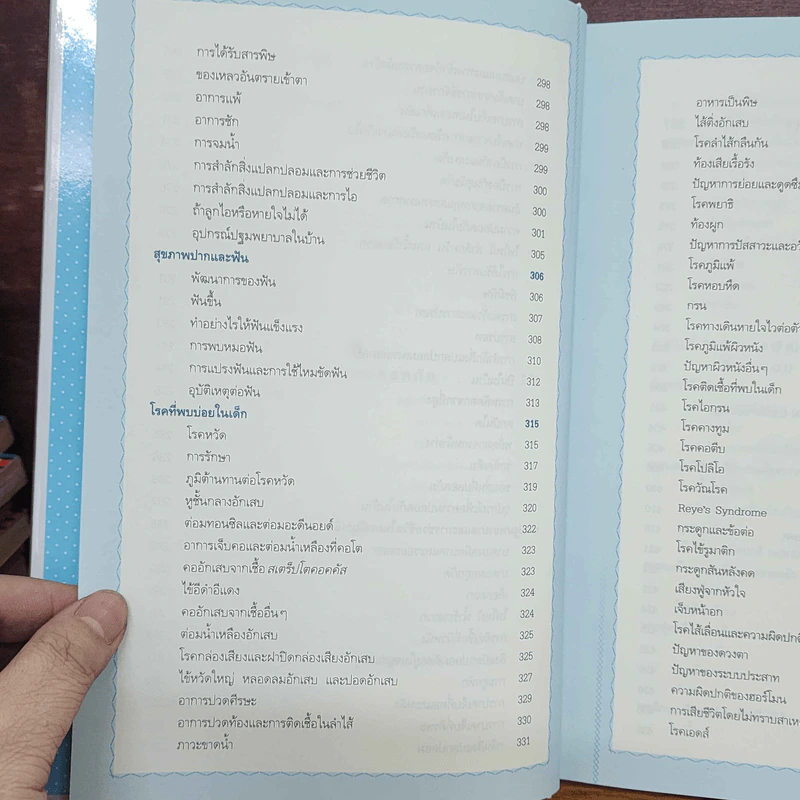 การได้รับสารพิษ 298
ของเหลวอันตรายเข้าตา 298
อาการแพ้ 298
อาการชัก 299
การจมน้ำ 299
การสำลักสิ่งแปลกปลอมและการช่วยชีวิต 300
การสำลักสิ่งแปลกปลอมและการไอ 300
ถ้าลูกไอหรือหายใจไม่ได้ 301
อุปกรณ์ปฐมพยาบาลในบ้าน 305
สุขภาพปากและฟัน 306
พัฒนาการของฟัน 306
ฟันขึ้น 307
ทำอย่างไรให้ฟันแข็งแรง 308
การพบหมอฟัน 310
การแปรงฟันและการใช้ไหมขัดฟัน 312
อุบัติเหตุต่อฟัน 313
โรคที่พบบ่อยในเด็ก 315
โรคหวัด 315
การรักษา 317
ภูมิต้านทานต่อโรคหวัด 319
หูชั้นกลางอักเสบ 320
ต่อมทอนซิลและต่อมอะดีนอยด์ 322
อาการเจ็บคอและต่อมน้ำเหลืองที่คอโต 323
คออักเสบจากเชื้อ สเตร็ปโตคอคคัส 323
ไข้อีดำอีแดง 324
คออักเสบจากเชื้ออื่นๆ 324
ต่อมน้ำเหลืองอักเสบ 325
โรคกล่องเสียงและฝาปิดกล่องเสียงอักเสบ 325
ไข้หวัดใหญ่ หลอดลมอักเสบ และปอดอักเสบ 327
อาการปวดศีรษะ 329
อาการปวดท้องและการติดเชื้อในลำไส้ 330
ภาวะขาดน้ำ 331
อาหารเป็นพิษ
ไส้ติ่งอักเสบ
โรคลำไส้กลืนกัน
ท้องเสียเรื้อรัง
ปัญหาการย่อยและดูดซึม
โรคพยาธิ
ท้องผูก
ปัญหาการปัสสาวะและ
โรคภูมิแพ้
โรคหอบหืด
กรน
โรคทางเดินหายใจไวต่อ
โรคภูมิแพ้ผิวหนัง
ปัญหาผิวหนังอื่นๆ
โรคติดเชื้อที่พบในเด็ก
โรคไอกรน
โรคคางทูม
โรคคอตีบ
โรคโปลิโอ
โรควัณโรค
Reye's Syndrome
กระดูกและข้อต่อ
โรคไข้รูมาติก
กระดูกสันหลังคด
เสียงฟู่จากหัวใจ
เจ็บหน้าอก
โรคไส้เลื่อนและความผิดปกติ
ปัญหาของดวงตา
ปัญหาของระบบประสาท
ความผิดปกติของฮอร์โมน
การเสียชีวิตโดยไม่ทราบสาเห
โรคเอดส์